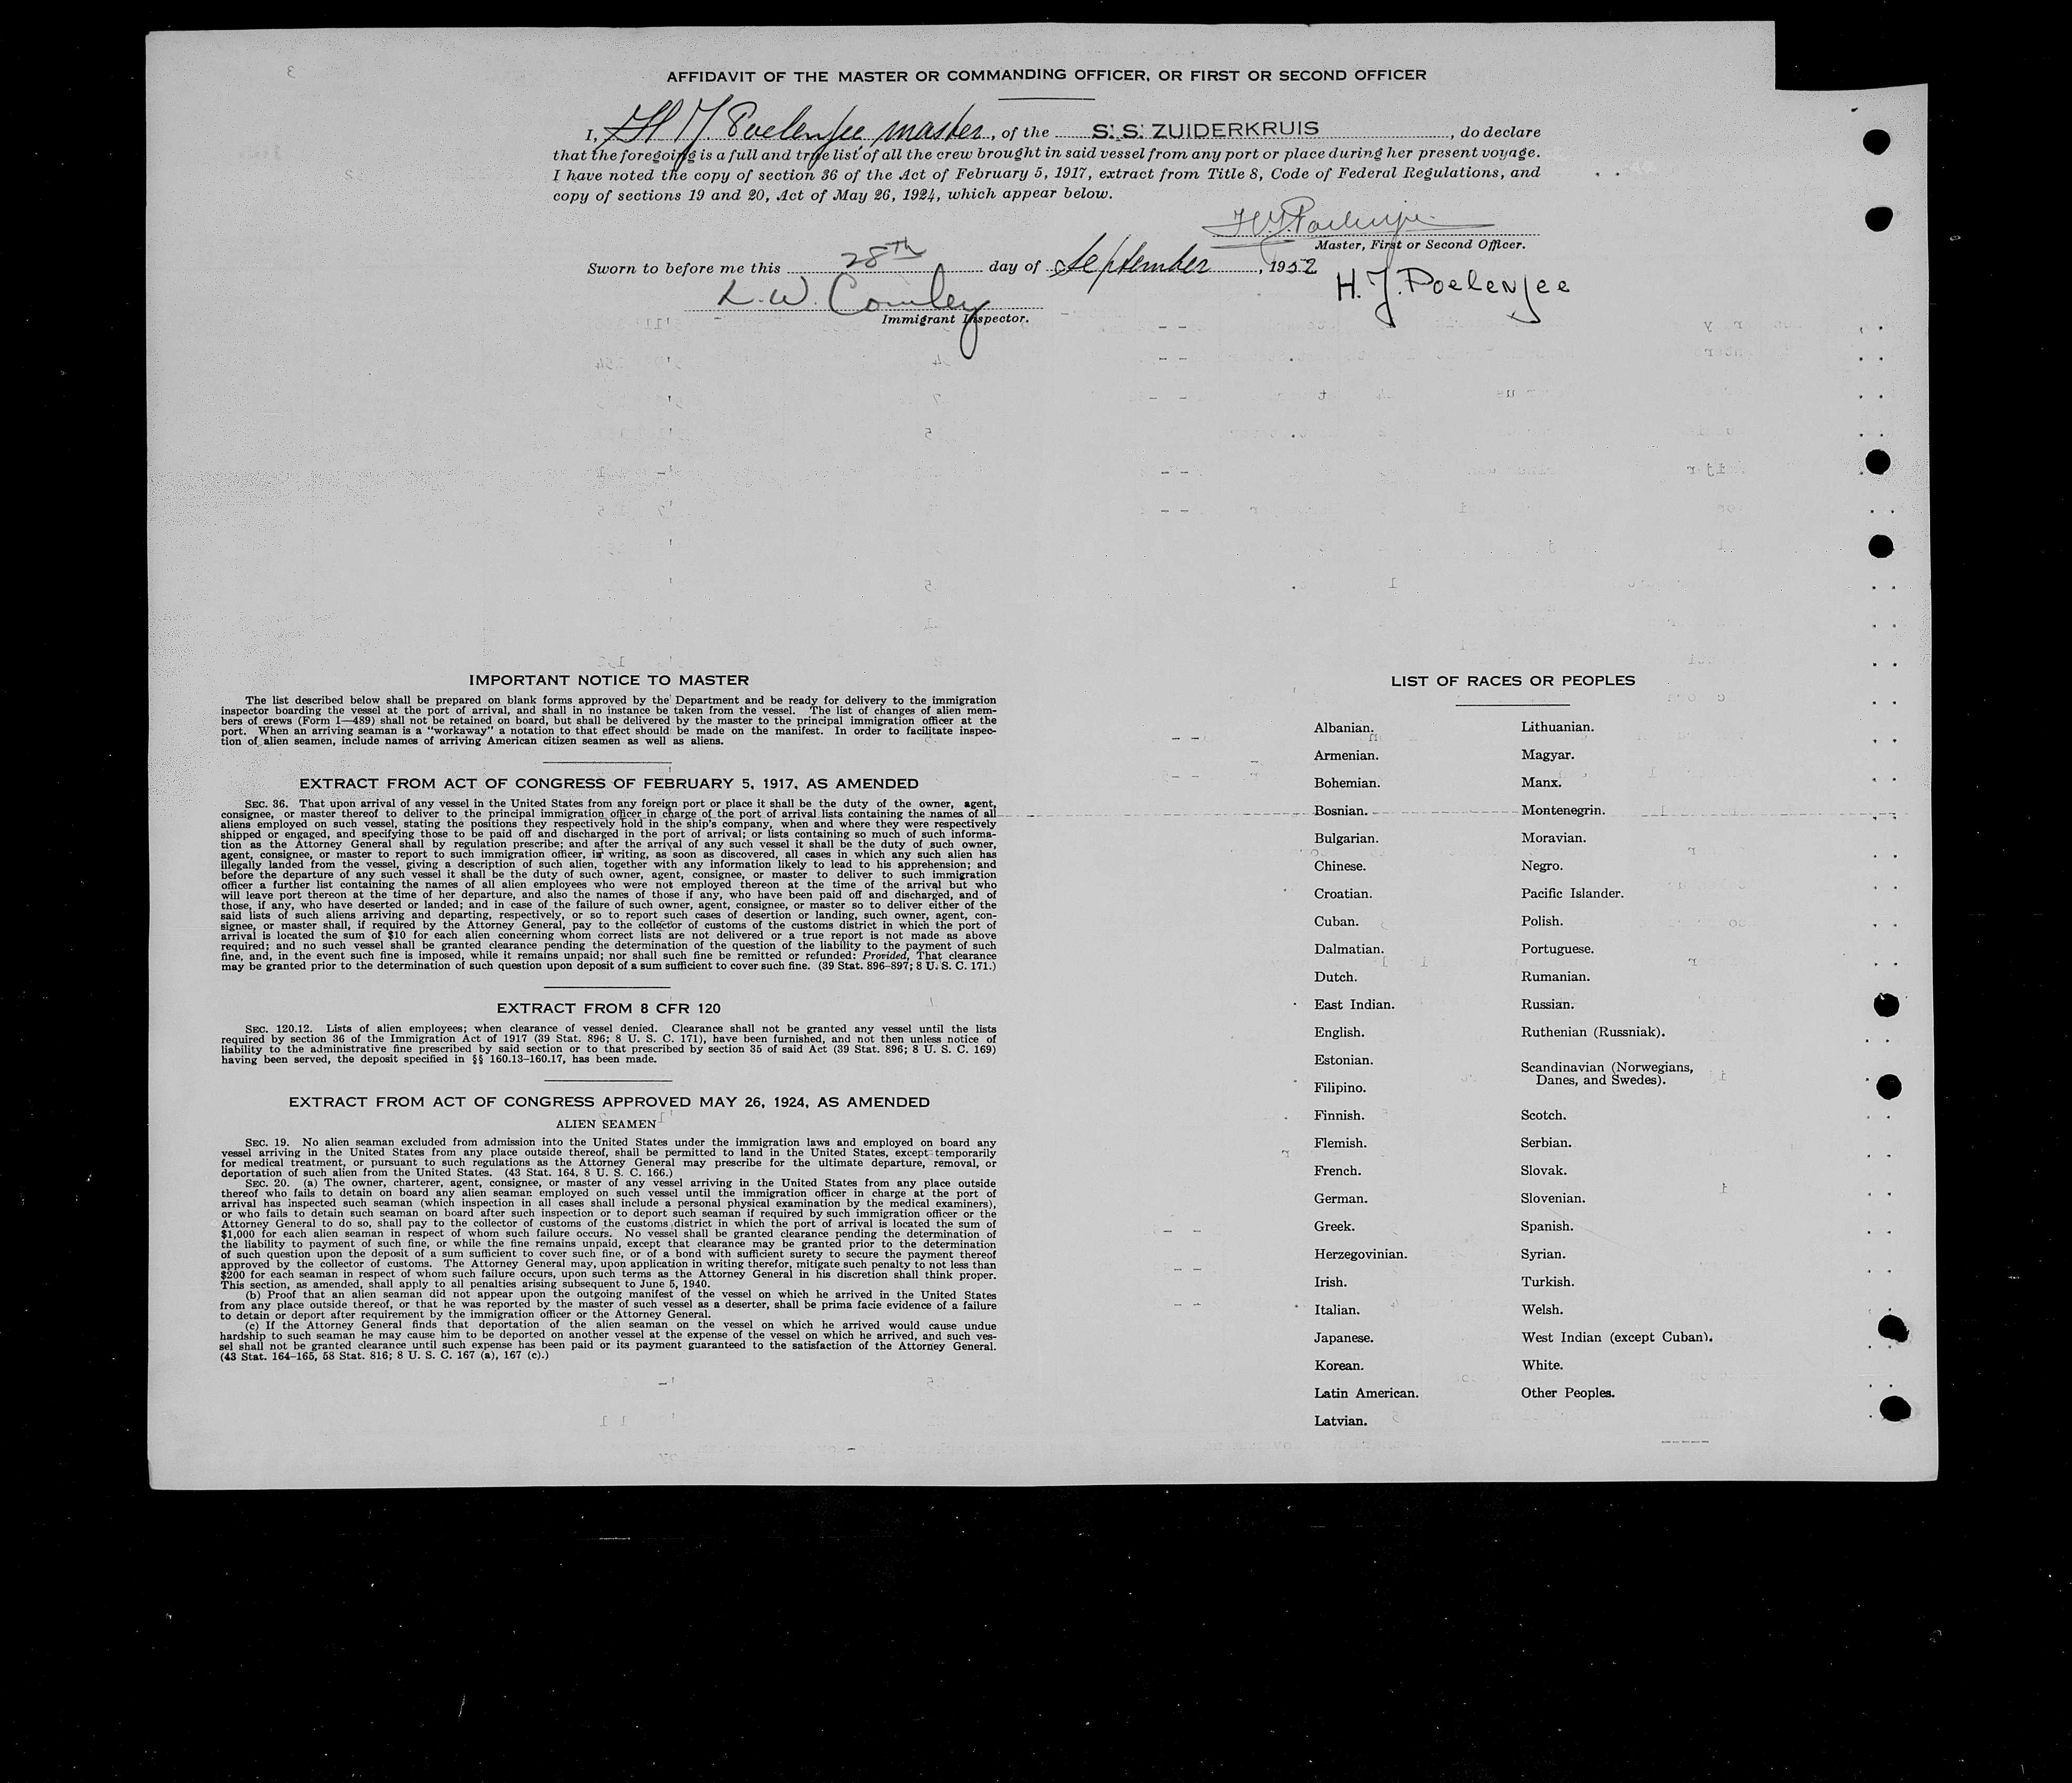 AFFIDAVIT OF THE MASTER OR COMMANDING OFFICER, OR FIRST OR SECOND OFFICER
I, H J. Poelenjee, master, of the S. S. ZUIDERKRUIS, do declare
that the foregoing is a full and true list of all the crew brought in said vessel from any port or place during her present voyage.
I have noted the copy of section 36 of the Act of February 5, 1917, extract from Title 8, Code of Federal Regulations, and
copy of sections 19 and 20, Act of May 26, 1924, which appear below.
H.J. Poelenjee
Master, First or Second Officer.
Sworn to before me this 28th day of September, 1952
H. J. Poelenjee
L. W. Comley
Immigrant Inspector.
IMPORTANT NOTICE TO MASTER
The list described below shall be prepared on blank forms approved by the Department and be ready for delivery to the immigration
inspector boarding the vessel at the port of arrival, and shall in no instance be taken from the vessel. The list of changes of alien mem-
bers of crews (Form I—489) shall not be retained on board, but shall be delivered by the master to the principal immigration officer at the
port. When an arriving seaman is a "workaway" a notation to that effect should be made on the manifest. In order to facilitate inspec-
tion of alien seamen, include names of arriving American citizen seamen as well as aliens.
EXTRACT FROM ACT OF CONGRESS OF FEBRUARY 5, 1917, AS AMENDED
SEC. 36. That upon arrival of any vessel in the United States from any foreign port or place it shall be the duty of the owner, agent,
consignee, or master thereof to deliver to the principal immigration officer in charge of the port of arrival lists containing the names of all
aliens employed on such vessel, stating the positions they respectively hold in the ship's company, when and where they were respectively
shipped or engaged, and specifying those to be paid off and discharged in the port of arrival; or lists containing so much of such informa-
tion as the Attorney General shall by regulation prescribe; and after the arrival of any such vessel it shall be the duty of such owner,
agent, consignee, or master to report to such immigration officer, in writing, as soon as discovered, all cases in which any such alien has
illegally landed from the vessel, giving a description of such alien, together with any information likely to lead to his apprehension; and
before the departure of any such vessel it shall be the duty of such owner, agent, consignee, or master to deliver to such immigration
officer a further list containing the names of all alien employees who were not employed thereon at the time of the arrival but who
will leave port thereon at the time of her departure, and also the names of those if any, who have been paid off and discharged, and of
those, if any, who have deserted or landed; and in case of the failure of such owner, agent, consignee or master so to deliver either of the
said lists of such aliens arriving and departing, respectively, or so to report such cases of desertion or landing, such owner, agent, con-
signee, or master shall, if required by the Attorney General, pay to the collector of customs of the customs district in which the port of
arrival is located the sum of $10 for each alien concerning whom correct lists are not delivered or a true report is not made as above
required; and no such vessel shall be granted clearance pending the determination of the question of the liability to the payment of such
fine, and, in the event such fine is imposed, while it remains unpaid; nor shall such fine be remitted or refunded: Provided, That clearance
may be granted prior to the determination of such question upon deposit of a sum sufficient to cover such fine. (39 Stat. 896–897; 8 U. S. C. 171.)
EXTRACT FROM 8 CFR 120
SEC. 120.12. Lists of alien employees; when clearance of vessel denied. Clearance shall not be granted any vessel until the lists
required by section 36 of the Immigration Act of 1917 (39 Stat. 896; 8 U. S. C. 171), have been furnished, and not then unless notice of
liability to the administrative fine prescribed by said section or to that prescribed by section 35 of said Act (39 Stat. 896; 8 U. S. C. 169)
having been served, the deposit specified in §§ 160.13–160.17, has been made.
EXTRACT FROM ACT OF CONGRESS APPROVED MAY 26, 1924, AS AMENDED
ALIEN SEAMEN
SEC. 19. No alien seaman excluded from admission into the United States under the immigration laws and employed on board any
vessel arriving in the United States from any place outside thereof, shall be permitted to land in the United States, except temporarily
for medical treatment, or pursuant to such regulations as the Attorney General may prescribe for the ultimate departure, removal, or
deportation of such alien from the United States. (43 Stat. 164, 8 U. S. C. 166.)
SEC. 20. (a) The owner, charterer, agent, consignee, or master of any vessel arriving in the United States from any place outside
thereof who fails to detain on board any alien seaman employed on such vessel until the immigration officer in charge at the port of
arrival has inspected such seaman (which inspection in all cases shall include a personal physical examination by the medical examiners),
or who fails to detain such seaman on board after such inspection or to deport such seaman if required by such immigration officer or the
Attorney General to do so, shall pay to the collector of customs of the customs district in which the port of arrival is located the sum of
$1,000 for each alien seaman in respect of whom such failure occurs. No vessel shall be granted clearance pending the determination of
the liability to payment of such fine, or while the fine remains unpaid, except that clearance may be granted prior to the determination
of such question upon the deposit of a sum sufficient to cover such fine, or of a bond with sufficient surety to secure the payment thereof
approved by the collector of customs. The Attorney General may, upon application in writing therefor, mitigate such penalty to not less than
$200 for each seaman in respect of whom such failure occurs, upon such terms as the Attorney General in his discretion shall think proper.
This section, as amended, shall apply to all penalties arising subsequent to June 5, 1940.
(b) Proof that an alien seaman did not appear upon the outgoing manifest of the vessel on which he arrived in the United States
from any place outside thereof, or that he was reported by the master of such vessel as a deserter, shall be prima facie evidence of a failure
to detain or deport after requirement by the immigration officer or the Attorney General.
(c) If the Attorney General finds that deportation of the alien seaman on the vessel on which he arrived would cause undue
hardship to such seaman he may cause him to be deported on another vessel at the expense of the vessel on which he arrived, and such ves-
sel shall not be granted clearance until such expense has been paid or its payment guaranteed to the satisfaction of the Attorney General.
(43 Stat. 164–165, 58 Stat. 816; 8 U. S. C. 167 (a), 167 (c).)
LIST OF RACES OR PEOPLES
Albanian.
Armenian.
Bohemian.
Bosnian.
Bulgarian.
Chinese.
Croatian.
Cuban.
Dalmatian.
Dutch.
East Indian.
English.
Estonian.
Filipino.
Finnish.
Flemish.
French.
German.
Greek.
Herzegovinian.
Irish.
Italian.
Japanese.
Korean.
Latin American.
Latvian.
Lithuanian.
Magyar.
Manx.
Montenegrin.
Moravian.
Negro.
Pacific Islander.
Polish.
Portuguese.
Rumanian.
Russian.
Ruthenian (Russniak).
Scandinavian (Norwegians,
Danes, and Swedes).
Scotch.
Serbian.
Slovak.
Slovenian.
Spanish.
Syrian.
Turkish.
Welsh.
West Indian (except Cuban).
White.
Other Peoples.